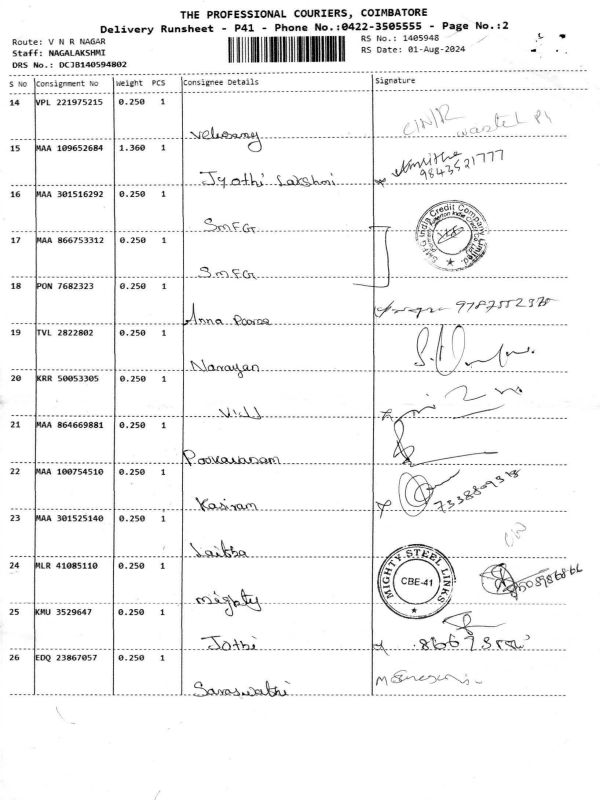 THE PROFESSIONAL COURIERS, COIMBATORE
Delivery Runsheet - P41 - Phone No.:0422-3505555 - Page No.:2
Route: V N R NAGAR RS No.: 1405948
Staff: NAGALAKSHMI RS Date: 01-Aug-2024
DRS No.: DCJB140594802
S No Consignment No Weight PCS Consignee Details Signature
14 VPL 221975215 0.250 1
Velusamy
15 MAA 109652684 1.360 1
Jyothi Lakshmi 9843521777
16 MAA 301516292 0.250 1
SMFG
17 MAA 866753312 0.250 1
SMFG
SMFG India Credit Company Limited.
18 PON 7682323 0.250 1
Anna Poorna
19 TVL 2822802 0.250 1
Narayan
20 KRR 50053305 0.250 1
21 MAA 864669881 0.250 1
22 MAA 100754510 0.250 1
Kasiram
23 MAA 301525140 0.250 1
24 MLR 41085110 0.250 1
Mighty
MIGHTY STEEL LINKS
CBE-41
25 KMU 3529647 0.250 1
Jothi
26 EDQ 23867057 0.250 1
Saraswathi